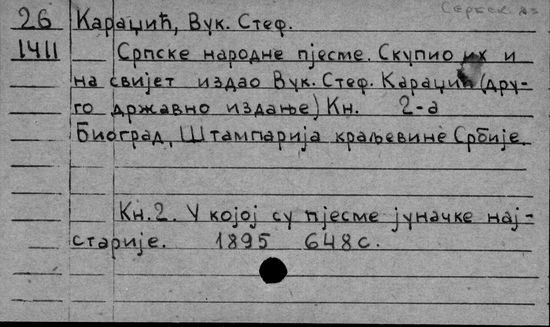 26 Караџић, Вук. Стеф.
1411 Српске народне пјесме. Скупио их и
на свијет издао Вук. Стеф. Караџић (дру-
го државно издање) Кн. 2-а
Биоград, Штампарија краљевине Србије.
Кн. 2. У којој су пјесме јуначке нај-
старије. 1895 648с.